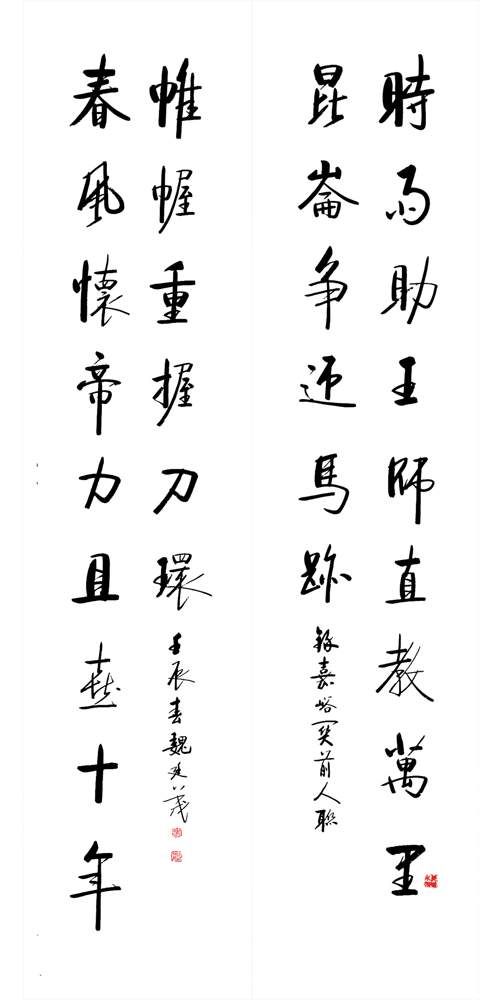 時雨助王師直教萬里
崑崙争迎馬跡
錄嘉峪関前人聯
春風懷帝力且喜十年
帷幄重握刀環
壬辰春魏茂